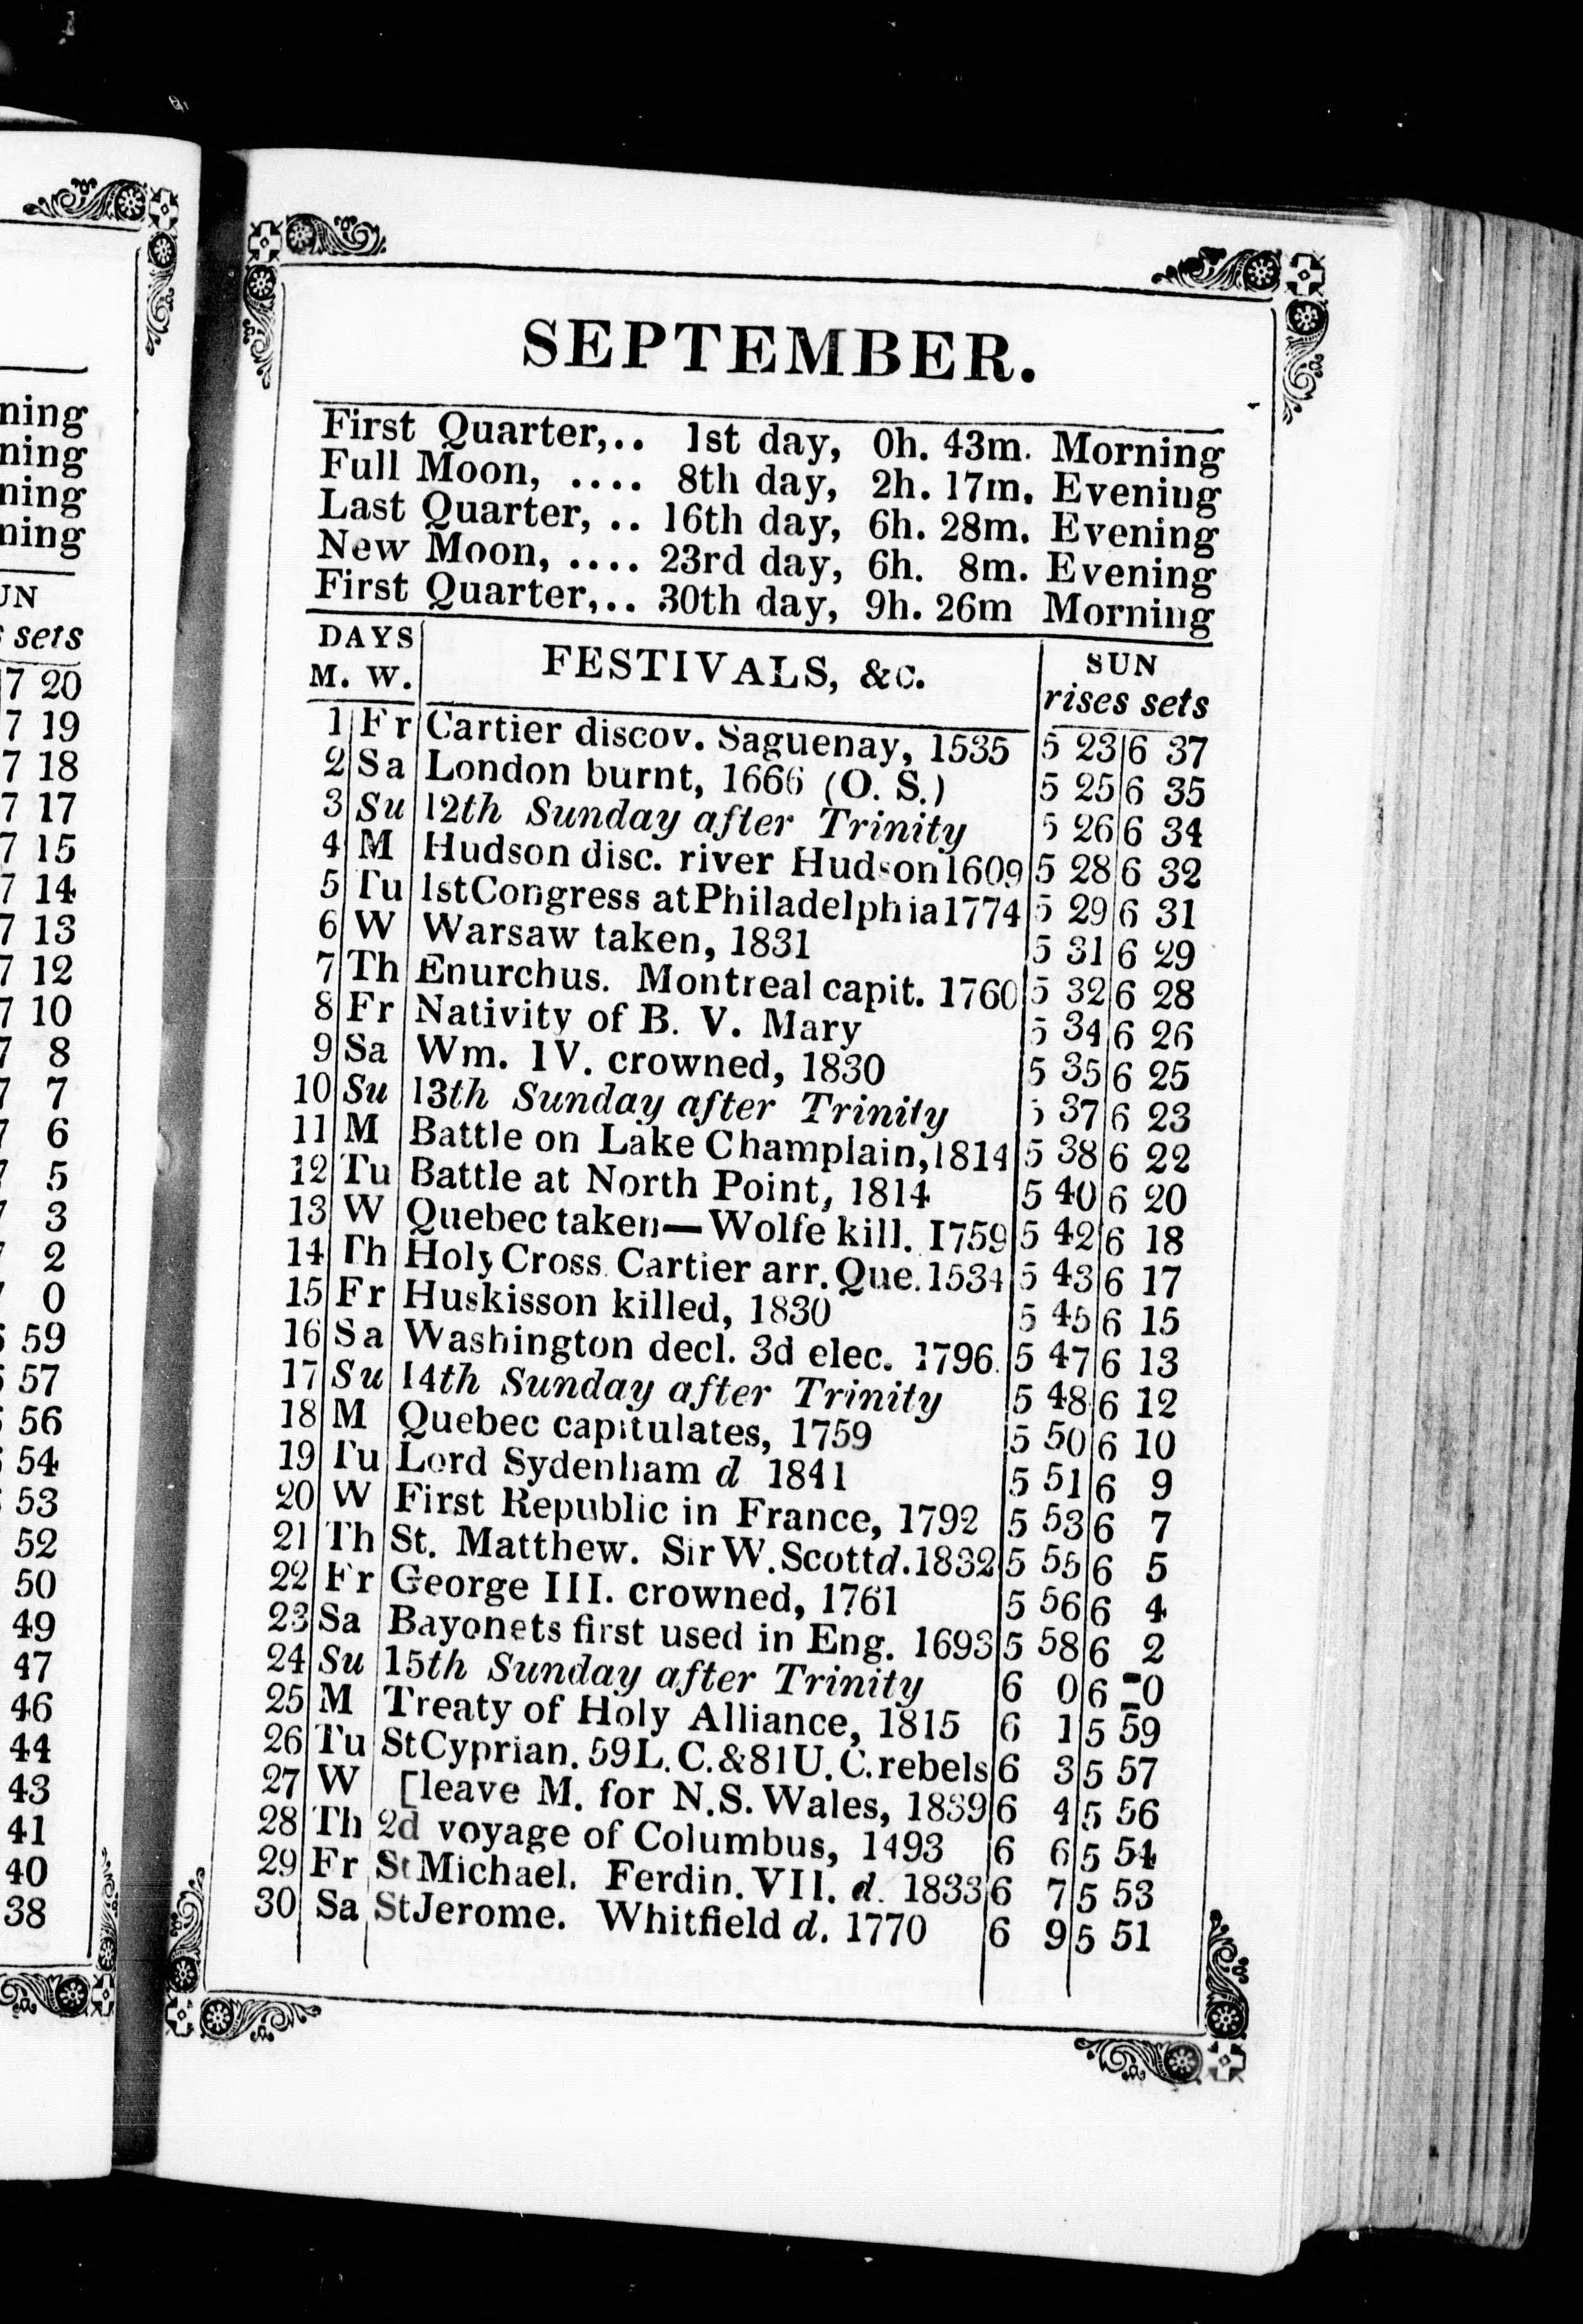 ning
ning
ning
ning
UN
sets
7 20
7 19
7 18
7 17
7 15
7 14
7 13
7 12
7 10
7 8
7 7
7 6
7 5
7 3
7 2
7 0
59
57
56
54
53
52
50
49
47
46
44
43
41
40
38
SEPTEMBER.
First Quarter,.. 1st day, 0h. 43m. Morning
Full Moon, .... 8th day, 2h. 17m. Evening
Last Quarter, .. 16th day, 6h. 28m. Evening
New Moon, .... 23rd day, 6h. 8m. Evening
First Quarter,.. 30th day, 9h. 26m Morning
DAYS FESTIVALS, &c. SUN
M. W. rises sets
1 Fr Cartier discov. Saguenay, 1535 5 23 6 37
2 Sa London burnt, 1666 (O. S.) 5 25 6 35
3 Su 12th Sunday after Trinity 5 26 6 34
4 M Hudson disc. river Hudson 1609 5 28 6 32
5 Tu 1st Congress at Philadelphia 1774 5 29 6 31
6 W Warsaw taken, 1831 5 31 6 29
7 Th Enurchus. Montreal capit. 1760 5 32 6 28
8 Fr Nativity of B. V. Mary 5 34 6 26
9 Sa Wm. IV. crowned, 1830 5 35 6 25
10 Su 13th Sunday after Trinity 5 37 6 23
11 M Battle on Lake Champlain, 1814 5 38 6 22
12 Tu Battle at North Point, 1814 5 40 6 20
13 W Quebec taken—Wolfe kill. 1759 5 42 6 18
14 Th Holy Cross. Cartier arr. Que. 1534 5 43 6 17
15 Fr Huskisson killed, 1830 5 45 6 15
16 Sa Washington decl. 3d elec. 1796. 5 47 6 13
17 Su 14th Sunday after Trinity 5 48 6 12
18 M Quebec capitulates, 1759 5 50 6 10
19 Tu Lord Sydenham d 1841 5 51 6 9
20 W First Republic in France, 1792 5 53 6 7
21 Th St. Matthew. Sir W. Scott d. 1832 5 55 6 5
22 Fr George III. crowned, 1761 5 56 6 4
23 Sa Bayonets first used in Eng. 1693 5 58 6 2
24 Su 15th Sunday after Trinity 6 0 6 0
25 M Treaty of Holy Alliance, 1815 6 1 5 59
26 Tu St Cyprian. 59 L. C. & 81 U. C. rebels 6 3 5 57
27 W [leave M. for N.S. Wales, 1839 6 4 5 56
28 Th 2d voyage of Columbus, 1493 6 6 5 54
29 Fr St Michael. Ferdin. VII. d. 1833 6 7 5 53
30 Sa St Jerome. Whitfield d. 1770 6 9 5 51